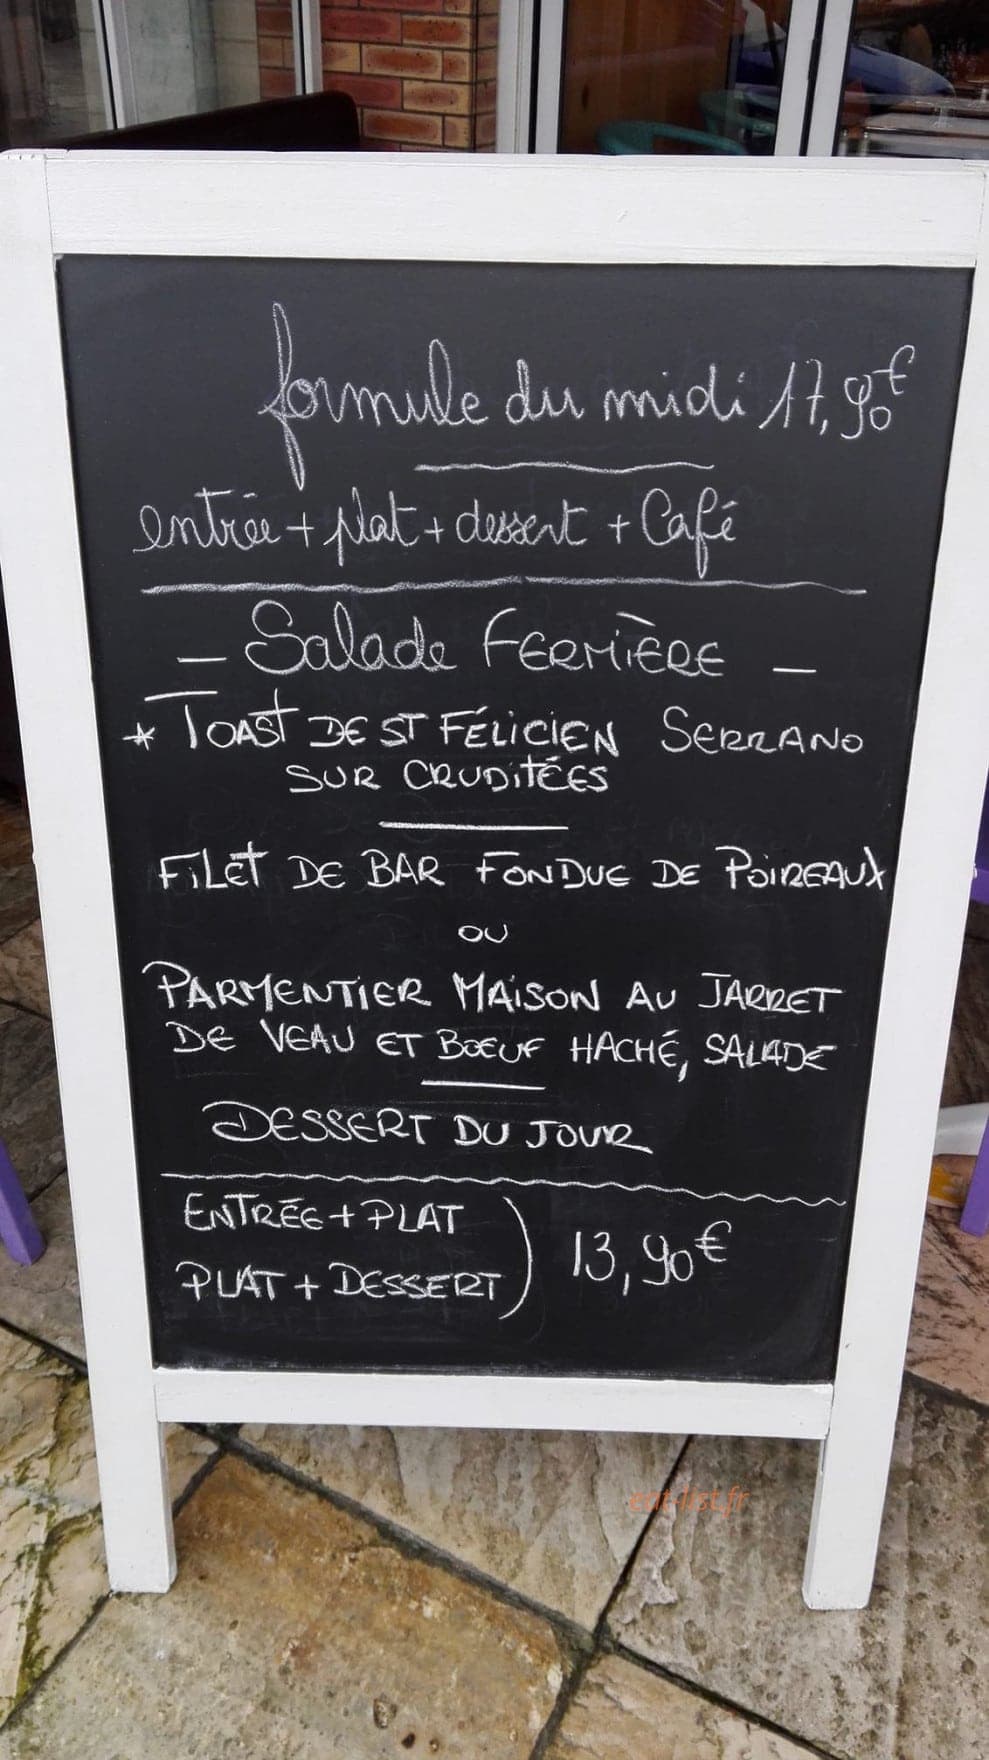 formule du midi 17,90€
entrée + plat + dessert + Café
- Salade FERMIÈRE -
* TOAST DE ST FÉLICIEN SERRANO
SUR CRUDITÉES
FILET DE BAR FONDUE DE POIREAUX
OU
PARMENTIER MAISON AU JARRET
DE VEAU ET BOEUF HACHÉ, SALADE
DESSERT DU JOUR
ENTRÉE + PLAT
PLAT + DESSERT ) 13,90€
eat-list.fr